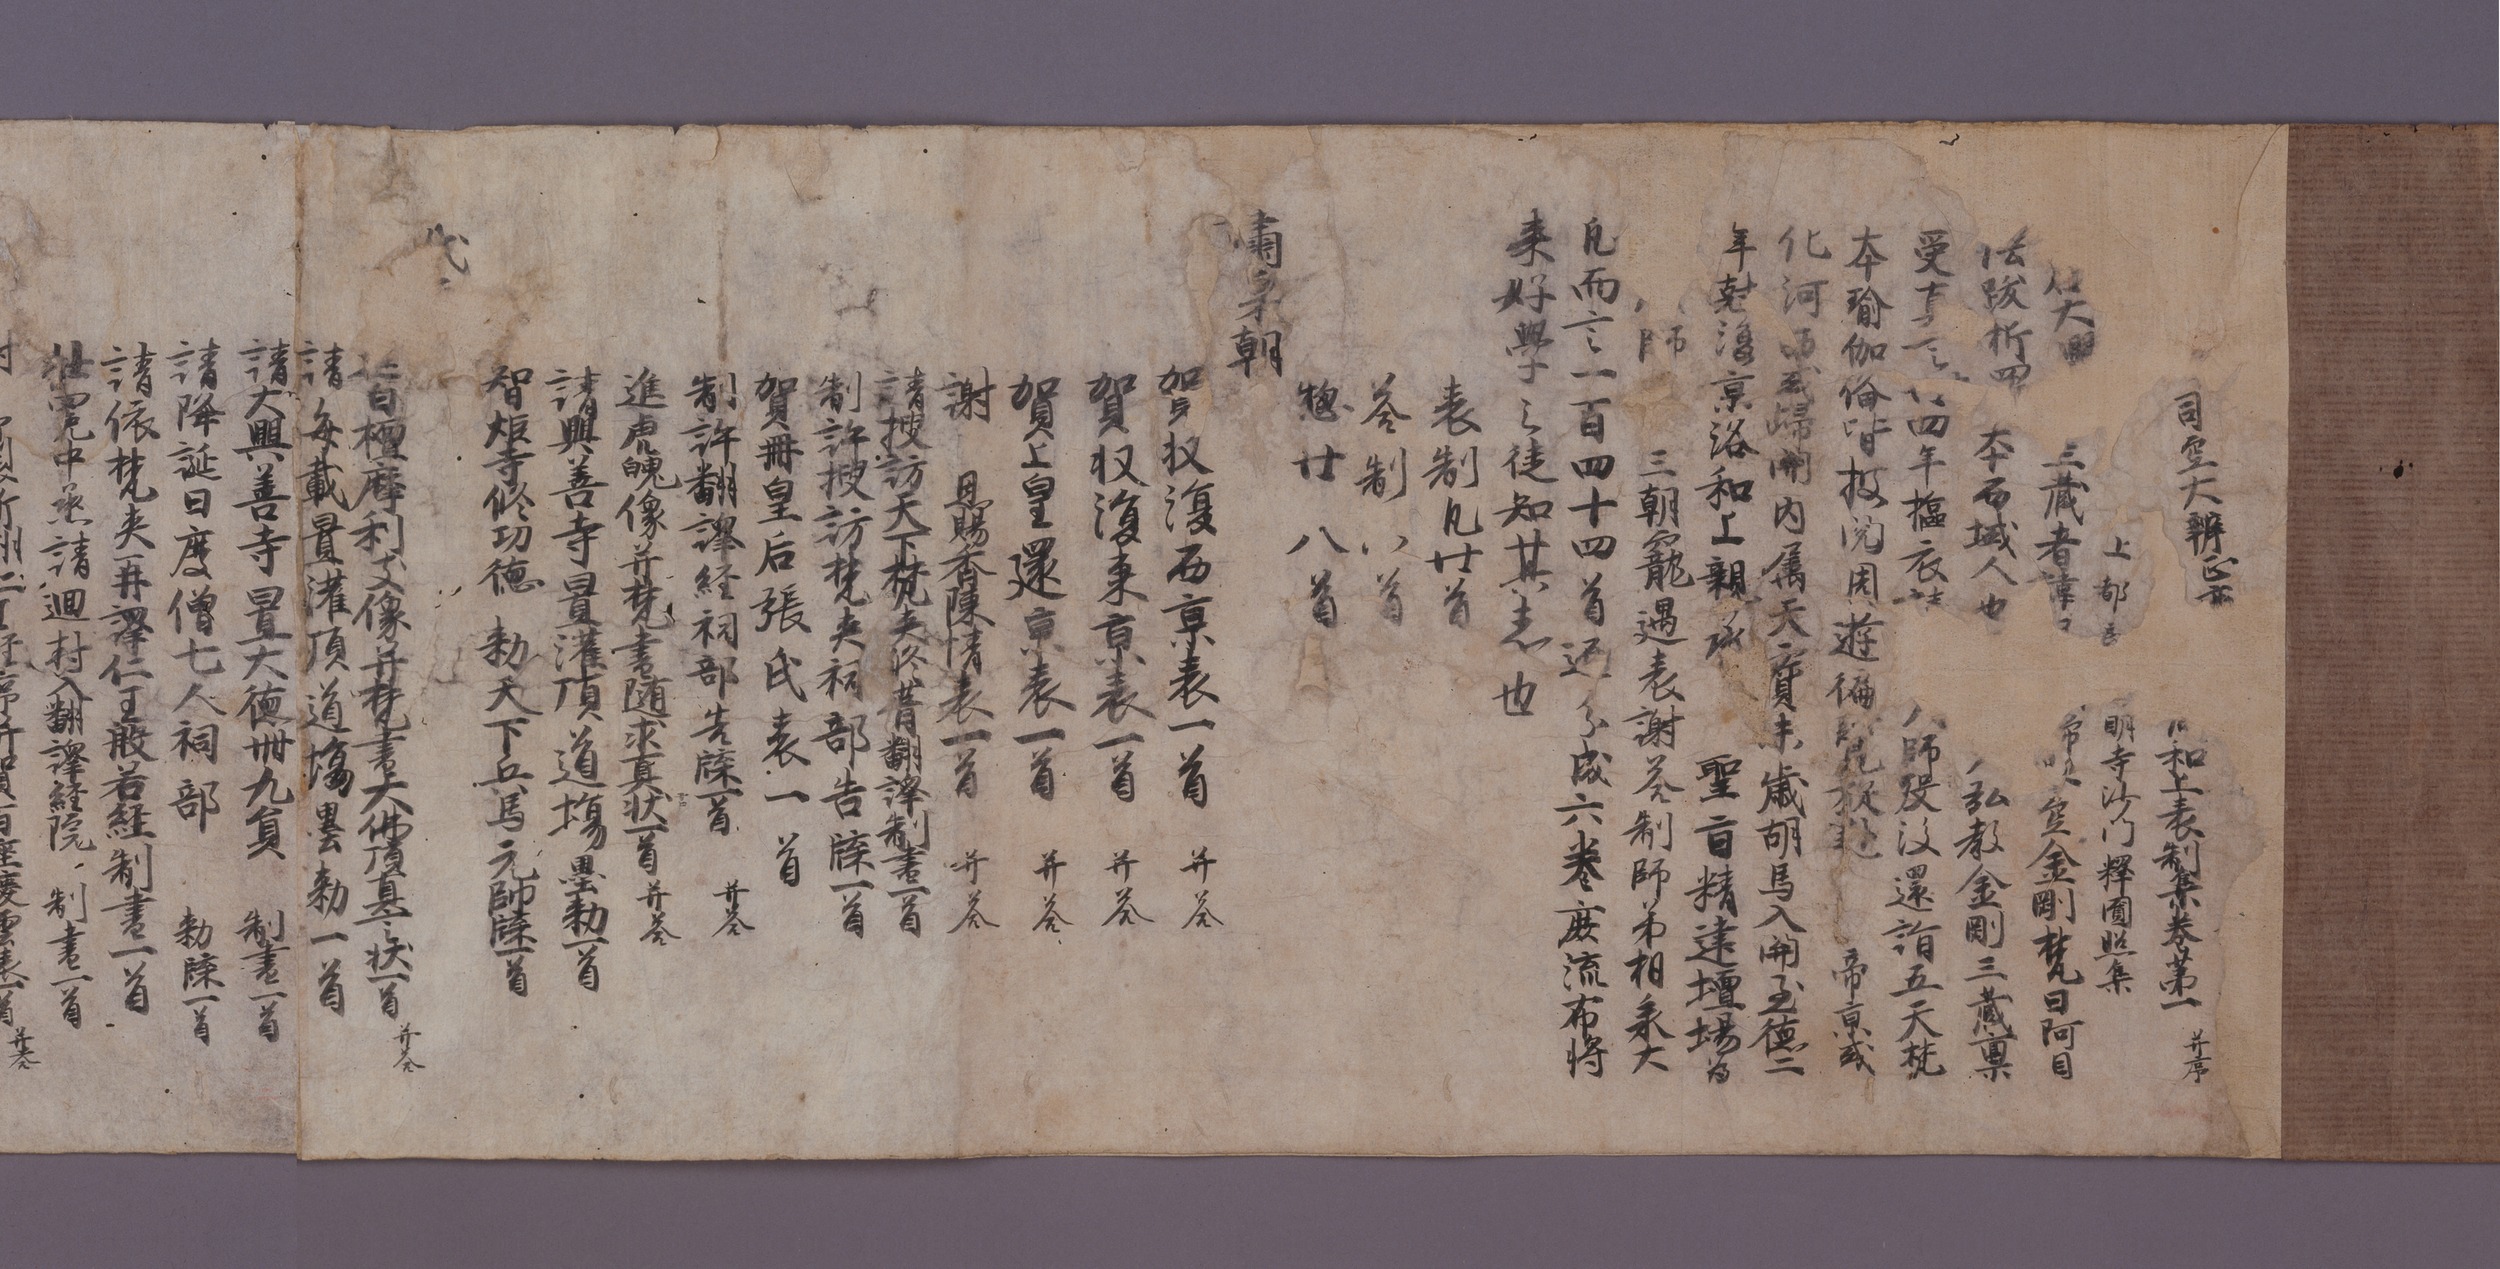 司空大辨正 和上表制集卷第一 并序
上都 明寺沙門釋圓照集
大 三藏者諱 空金剛梵曰阿目
佉跋折 本西域人也 弘教金剛三藏稟
受 言 廿四年摳衣 師歿後還詣五天梵
本瑜伽倫皆披閱周遊徧 帝京或
化河西或歸關內属天寶末歲胡馬入關至德二
年剋復京洛和上親承 聖旨精建壇場為
師 三朝寵遇表謝荅制師弟相乘大
凡而言一百四十四首 分成六卷庶流布將
来好學之徒知其志也
表制凡廿首
荅制八首
惣廿八首
肅宗朝
賀收復西京表一首 并荅
賀収復東京表一首 并荅
賀上皇還京表一首 并荅
謝 恩賜香陳情表一首 并荅
請搜訪天下梵夾修葺翻譯制書一首
制許搜訪梵夾祠部告牒一首
賀冊皇后張氏表一首
制許翻譯経祠部告牒一首 并荅
進虎魄像并梵書随求真狀一首 并荅
請興善寺置灌頂道塲墨勅一首
智炬寺修功德 勅天下兵馬元師牒一首
代
檀摩利支像并梵書大佛頂真言狀一首 并荅
請每載置灌頂道塲墨勅一首
請大興善寺置大德卌九負 制書一首
請降誕日度僧七人祠部 勅牒一首
請依梵夾再譯仁王般若経制書一首
中丞請迴封入翻譯経院 制書一首